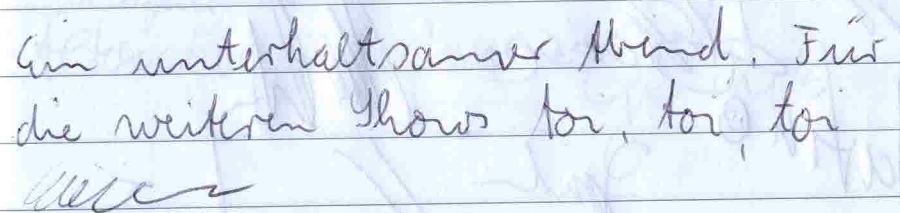 Ein unterhaltsamer Abend. Für
die weiteren Shows toi, toi, toi